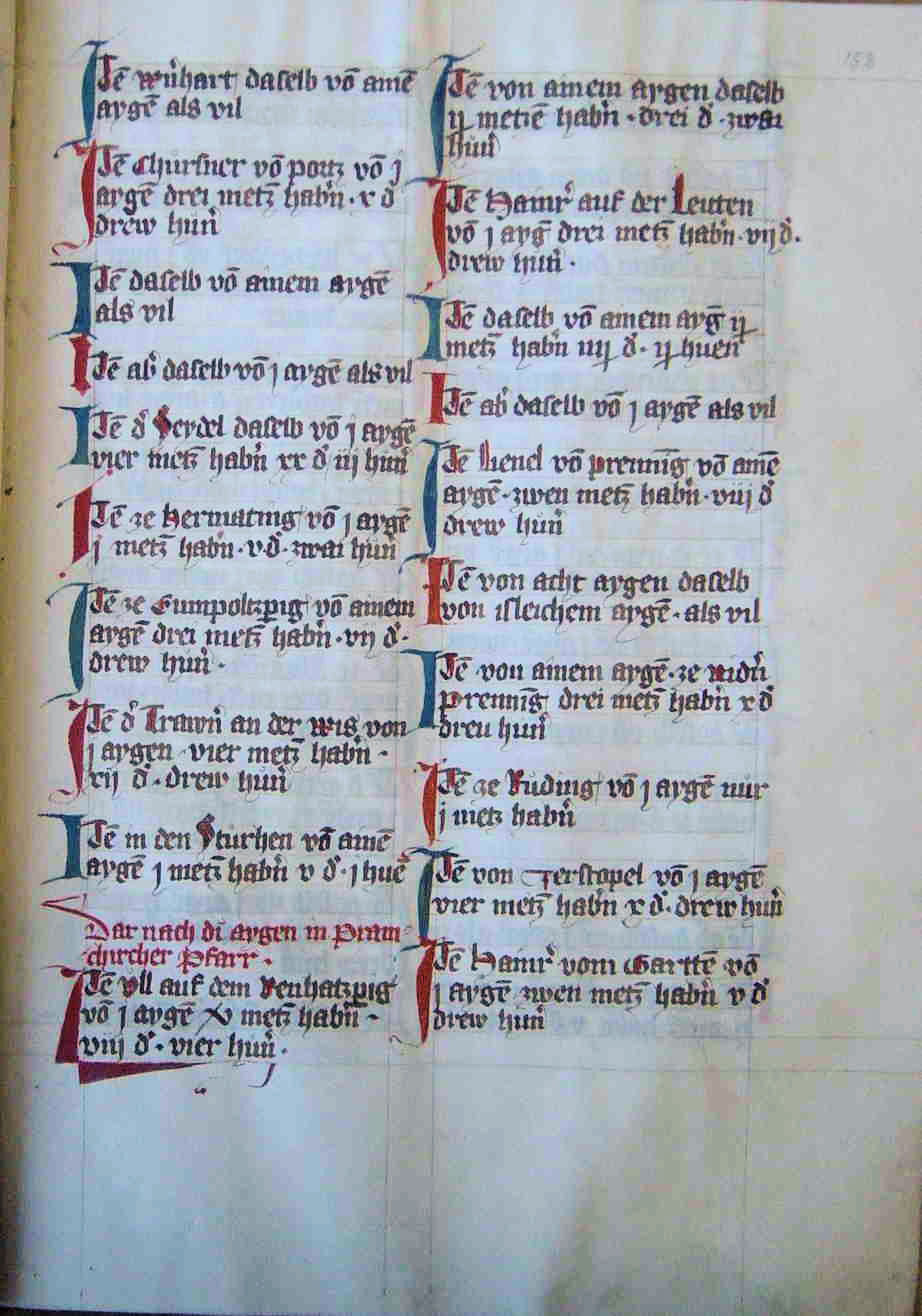 Itē Wernhart daselb vō amē
aygē als vil
Itē Chürsner vō portz vō j
aygē drei metz habn̄ · x d
drew hun̄
Itē daselb vō ainem aygē
als vil
Itē ab daselb vō j aygē als vil
Itē d Seydel daselb vō j aygē
vier metz habn̄ xx d iij hun̄
Itē ze hermanīg vō j aygē
j metz habn̄ · v d · zwai hun̄
Itē ze Eumpoltzpīg vō ainem
aygē drei metz habn̄ · vij d ·
drew hun̄ ·
Itē d Trawn̄ an der wis von
j aygen · vier metz habn̄ ·
xij d · drew hun̄
Itē in den Sturhen vō ainē
aygē j metz habn̄ v d · j huē
Dar nach di aygen in Pram-
chircher Pfarr ·
Itē Vll auf dem Reuhatzpīg
vō j aygē xv metz habn̄ ·
viij d · vier hun̄ ·
158
Itē von ainem aygen daselb
ij metzē habn̄ · drei d · zwai
hun̄
Itē Hainr̄ auf der Leuten
vō j ayg drei metz habn̄ · vij d ·
drew hun̄ ·
Itē daselb vō ainem ayg ij
metz habn̄ iiij d · ij huen
Itē ab daselb vō j aygē als vil
Itē Lienel vō prennīg vō amē
aygē · zwen metz habn̄ · viij d
drew hun̄
Itē von acht aygen daselb
von isleichem aygē · als vil
Itē von ainem aygē · ze nidn̄
prennīg drei metz habn̄ x d
dreu hun̄
Itē ze Ruding vō j aygē nur
j metz habn̄
Itē von Zerstopel vō j aygē
vier metz habn̄ x d · drew hun̄
Itē Hainr̄ vom Garttē vō
j aygē zwen metz habn̄ v d
drew hun̄